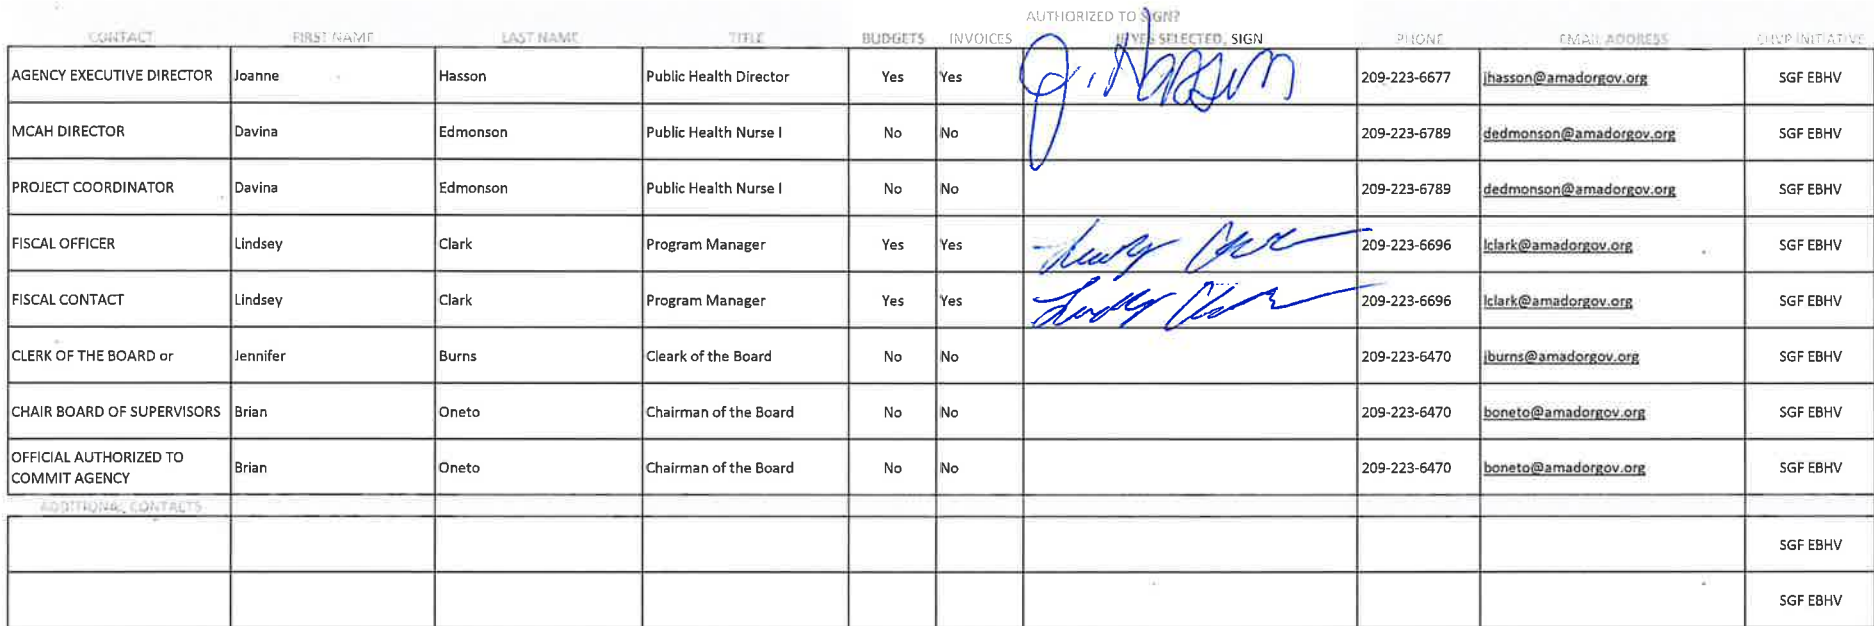 AUTHORIZED TO SIGN?
CONTACT FIRST NAME LAST NAME TITLE BUDGETS INVOICES IF YES SELECTED, SIGN PHONE EMAIL ADDRESS CHVP INITIATIVE
AGENCY EXECUTIVE DIRECTOR Joanne Hasson Public Health Director Yes Yes J. Hasson 209-223-6677 jhasson@amadorgov.org SGF EBHV
MCAH DIRECTOR Davina Edmonson Public Health Nurse I No No 209-223-6789 dedmonson@amadorgov.org SGF EBHV
PROJECT COORDINATOR Davina Edmonson Public Health Nurse I No No 209-223-6789 dedmonson@amadorgov.org SGF EBHV
FISCAL OFFICER Lindsey Clark Program Manager Yes Yes 209-223-6696 lclark@amadorgov.org SGF EBHV
FISCAL CONTACT Lindsey Clark Program Manager Yes Yes 209-223-6696 lclark@amadorgov.org SGF EBHV
CLERK OF THE BOARD or Jennifer Burns Cleark of the Board No No 209-223-6470 jburns@amadorgov.org SGF EBHV
CHAIR BOARD OF SUPERVISORS Brian Oneto Chairman of the Board No No 209-223-6470 boneto@amadorgov.org SGF EBHV
OFFICIAL AUTHORIZED TO
COMMIT AGENCY Brian Oneto Chairman of the Board No No 209-223-6470 boneto@amadorgov.org SGF EBHV
ADDITIONAL CONTACTS
SGF EBHV
SGF EBHV